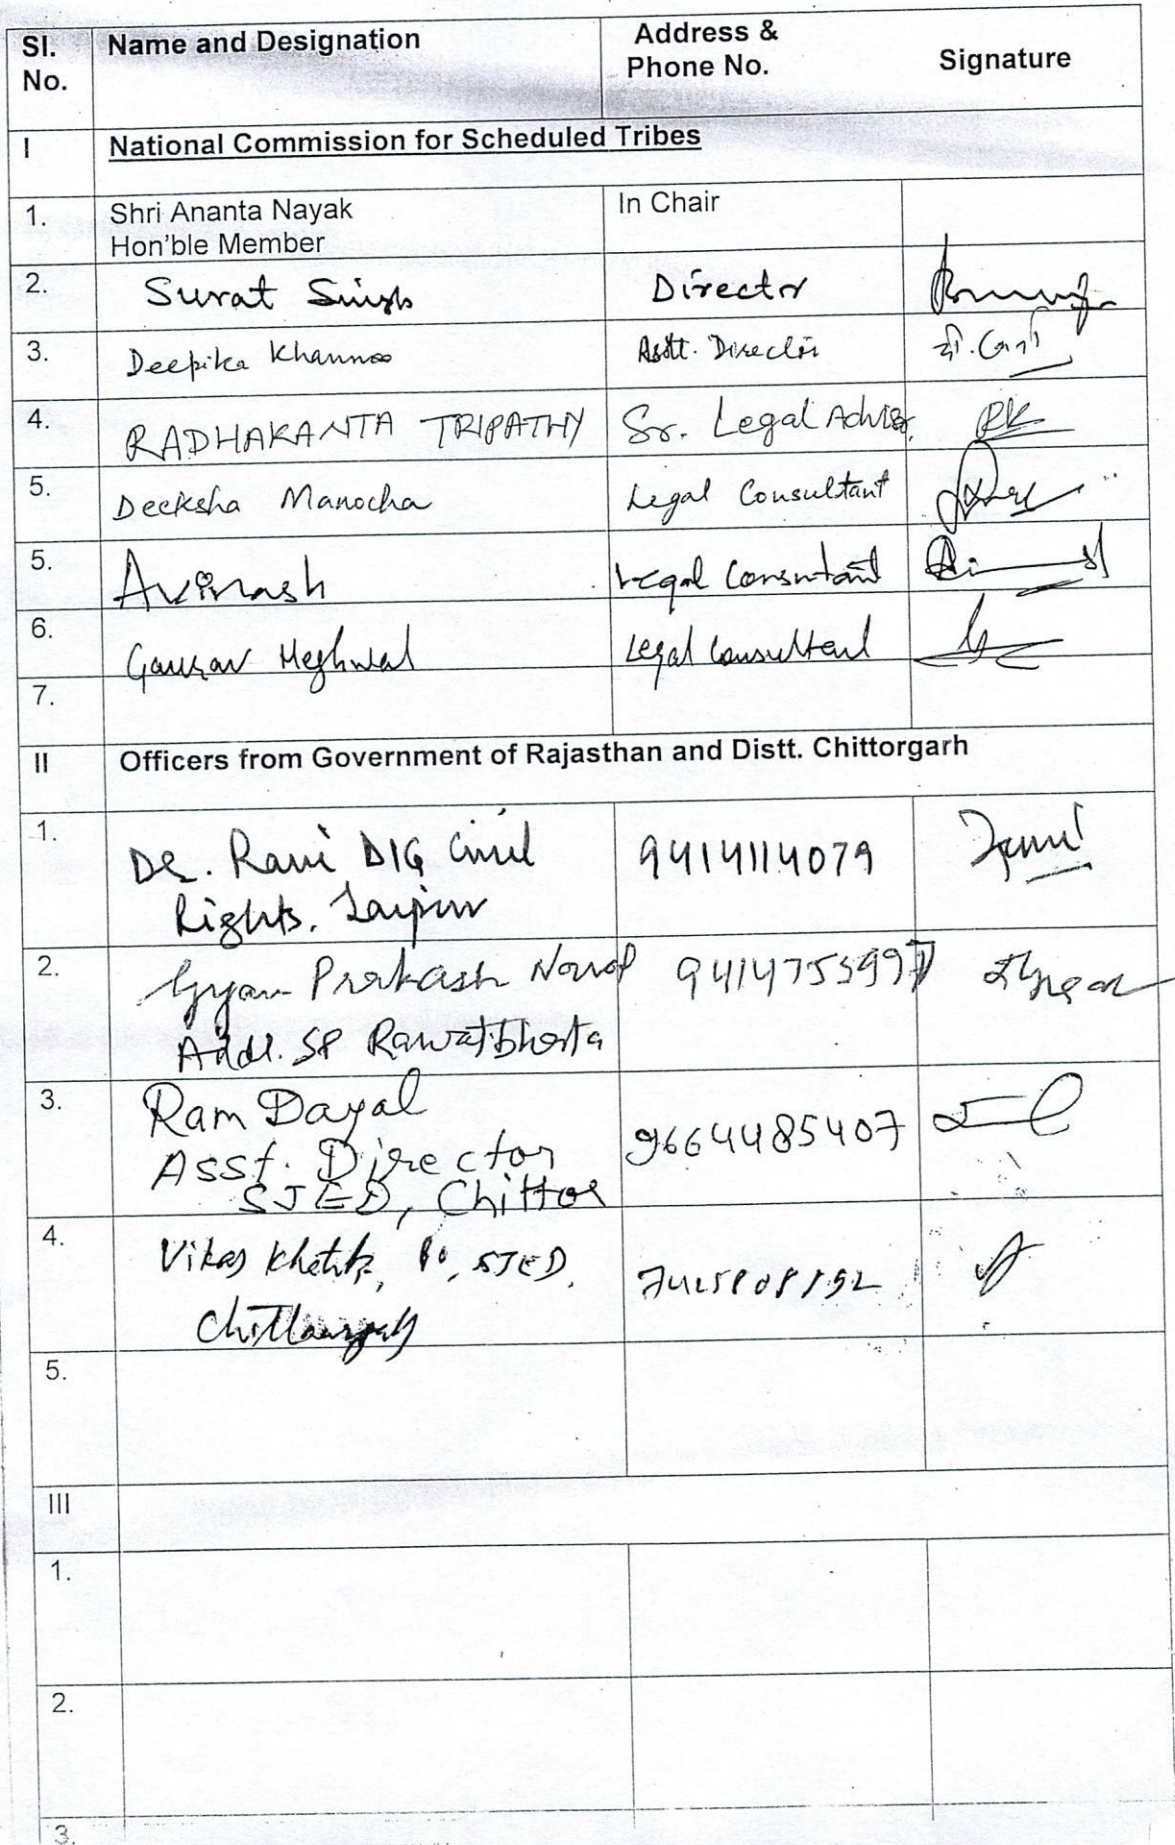 Sl. No. Name and Designation Address & Phone No. Signature
I National Commission for Scheduled Tribes
1. Shri Ananta Nayak In Chair
Hon'ble Member
2. Surat Singh Director
3. Deepika Khanna Asstt. Director
4. RADHAKANTA TRIPATHY Sr. Legal Advisor
5. Deeksha Manocha Legal Consultant
5. Avinash Legal Consultant
6. Gaurav Meghwal Legal Consultant
7.
II Officers from Government of Rajasthan and Distt. Chittorgarh
1. Dr. Ravi DIG Civil 9414114079
Rights. Jaipur
2. Gyan Prakash 9414755997
Addl. SP Rawatbhata
3. Ram Dayal 9664485407
Asst. Director
SJED, Chittor
4. Vikas Khatik, SJED,
Chittaurgarh
5.
III
1.
2.
3.